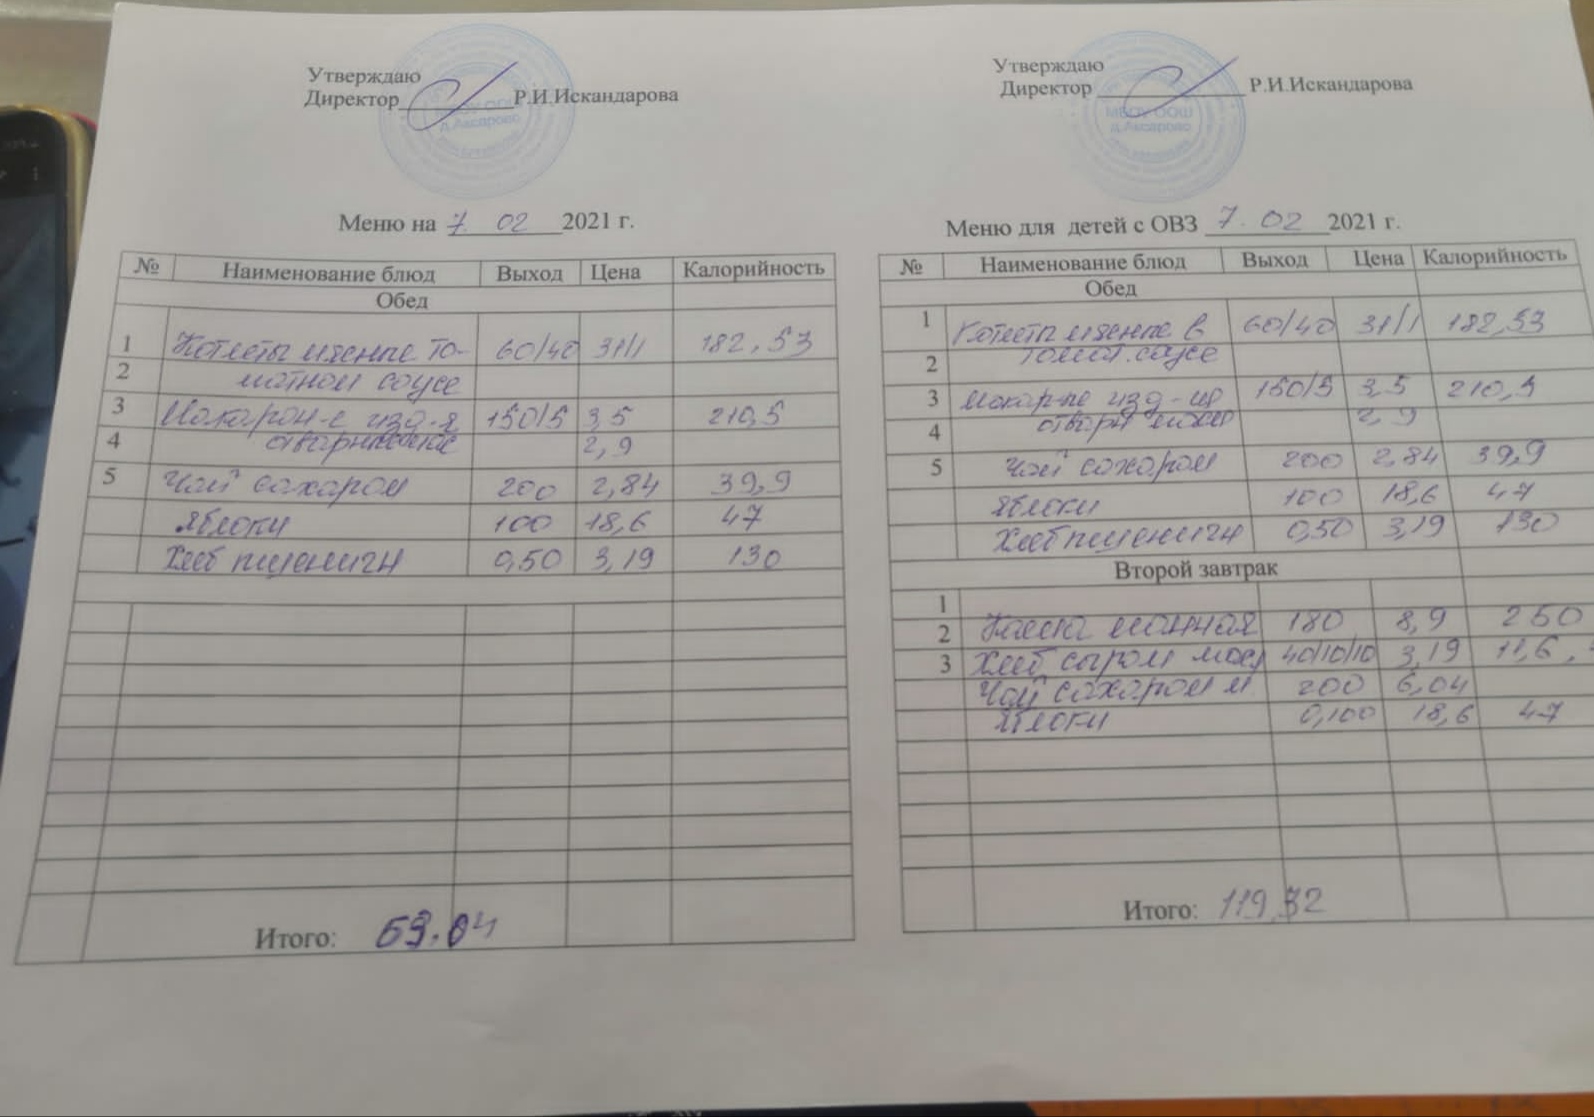 Утверждаю
Директор Р.И.Искандарова
МБОУ ООШ
д.Амзарово
Меню на 7. 02 2021 г.
№ Наименование блюд Выход Цена Калорийность
Обед
1 Котлеты мясные то- 60/40 31/1 182,53
2 матном соусе
3 Макарон-е изд-я 150/5 3,5 210,5
4 отварн 2,9
5 Чай сахаром 200 2,84 39,9
Яблоки 100 18,6 47
Хлеб пшеничн 0,50 3,19 130
Итого: 63.04
Утверждаю
Директор Р.И.Искандарова
МБОУ ООШ
д.Амзарово
Меню для детей с ОВЗ 7. 02 2021 г.
№ Наименование блюд Выход Цена Калорийность
Обед
1 Котлеты мясные в 60/40 31/1 182,53
2 томат.соусе
3 Макар-ые изд-ия 150/5 3,5 210,5
4 отварн 2,9
5 Чай сахаром 200 2,84 39,9
Яблоки 100 18,6 47
Хлеб пшеничн 0,50 3,19 130
Второй завтрак
1
2 Каша манная 180 8,9 250
3 Хлеб сыром масл 40/10/10 3,19 11,6
Чай сахаром м 200 6,04
Яблоки 0,100 18,6 47
Итого: 119,32